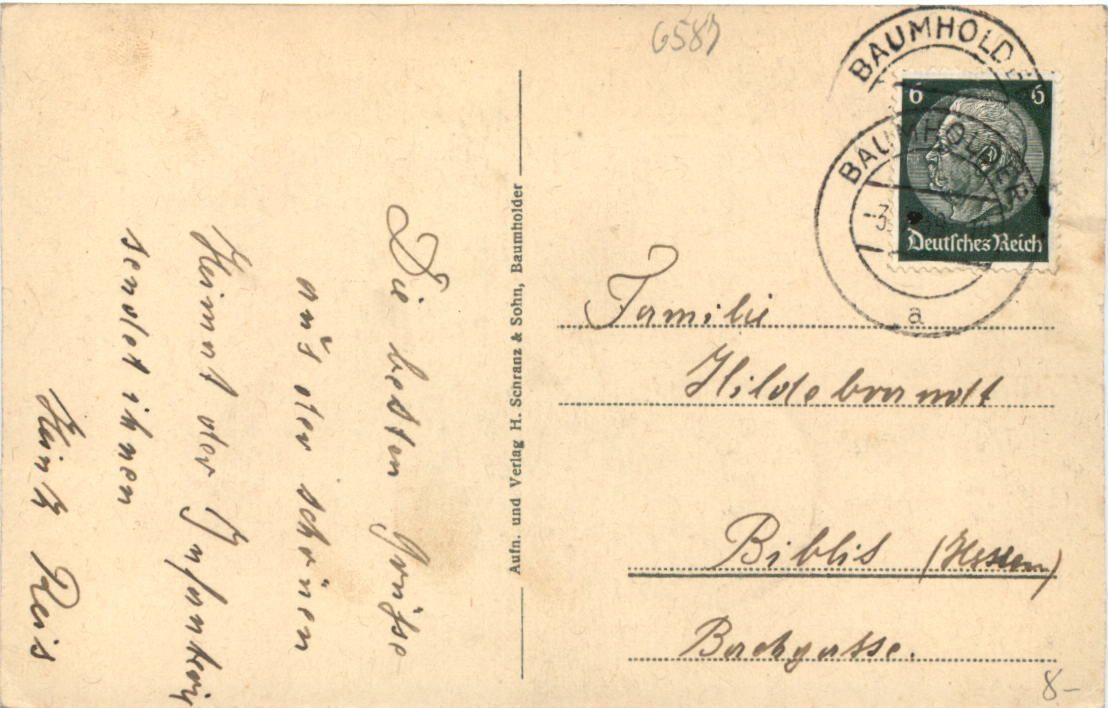 6587
BAUMHOLDE
BAUMHOLDER
6 6
Deutsches Reich
a
Die besten Grüsse
aus der schönen
Heimat der Infanterie
sendet ihnen
Heintz Reis
Aufn. und Verlag H. Schranz & Sohn, Baumholder
Familie
Hildebrandt
Biblis (Hessen)
Bachgasse.
8-